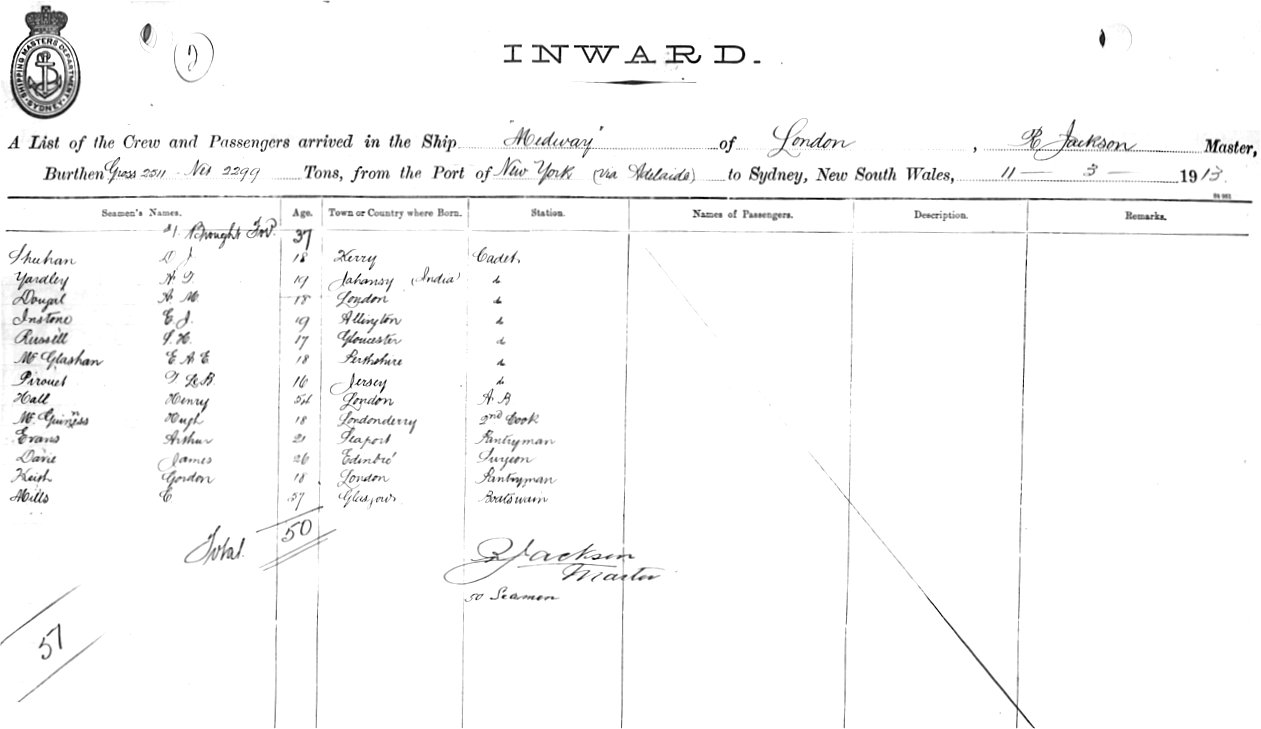 SHIPPING MASTERS DEPARTMENT SYDNEY
INWARD.
A List of the Crew and Passengers arrived in the Ship "Medway" of London , R Jackson Master,
Burthen Gross 2511 Net 2299 Tons, from the Port of New York (via Adelaide) to Sydney, New South Wales, 11 — 3 — 1913.
Seamen's Names. Age. Town or Country where Born. Station. Names of Passengers. Description. Remarks.
Brought For'd. 37
Sheehan D J 18 Kerry Cadet
Yardley A 19 Jahansy (India) do
Dougal A M 18 London do
Instone E J. 19 Allington do
Russell S. H. 17 Gloucester do
McGlashan E A E 18 Perthshire do
Pirouet F Le B. 16 Jersey do
Hall Henry London A B
McGuinness Hugh 18 Londonderry 2nd Cook
Evans Arthur 21 Seaport Pantryman
Davie James 26 Edinbro' Surgeon
Keish Gordon 18 London Pantryman
Mills E 37 Glasgow Boatswain
Total. 50
R Jackson
Master
50 Seamen
57